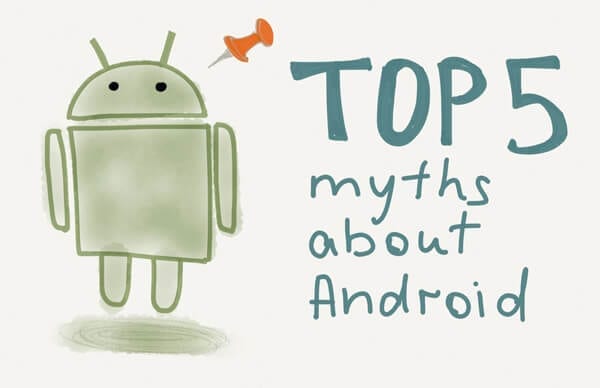 TOP 5
myths
about
Android